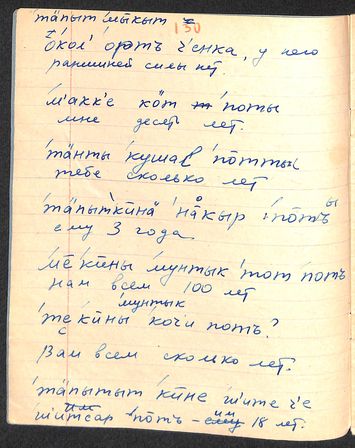 'тӓпыт 'мы̄кыт
130
о̄кол' 'орт̄ъ ч'е̄нка, у него
ранишней силы нет.
'м'акк'е кӧт 'поты
мне десят лет.
'та̄нты 'кушаl 'по̄тты
тебе сколько лет
'тӓпыт'кина̄ 'на̊кыр 'по̄тъ ы
ему 3 года
'ме̄'кины 'мунтык 'тот 'потъ
нам всем 100 лет
'мунтык
'те̄'кины 'коч'и потъ?
Вам всем сколько лет?
'тӓпытыт 'кине 'ш'ите ч'е
'ш'итсар 'по̄т – им 18 лет.